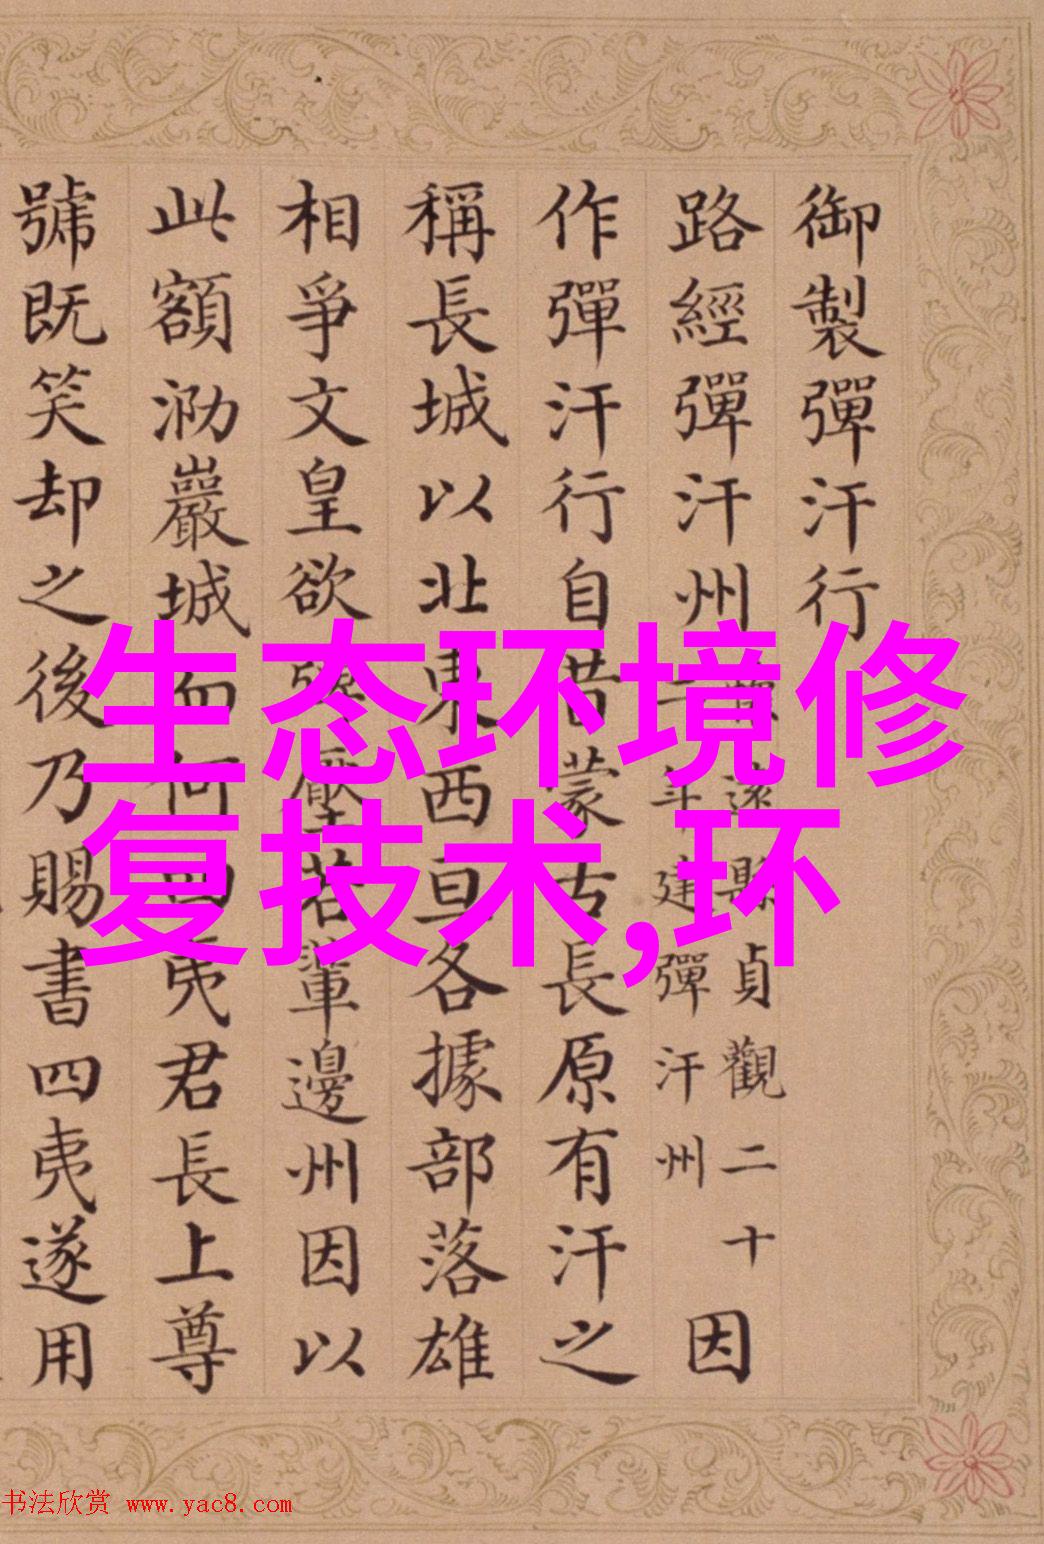 御製彈汗行
路經彈汗州
遠縣貞觀二十
年建彈汗州
因
作彈汗行自昔蒙古長原有汗之
稱長城以北東西亘各據部落雄
相爭文皇欲壓若輩邊州因以
此額泐巖城而何四夷君長上尊
號既笑却之後乃賜書四夷遂用
生态环境修
复技术,环
书法欣赏 www.yac8.com